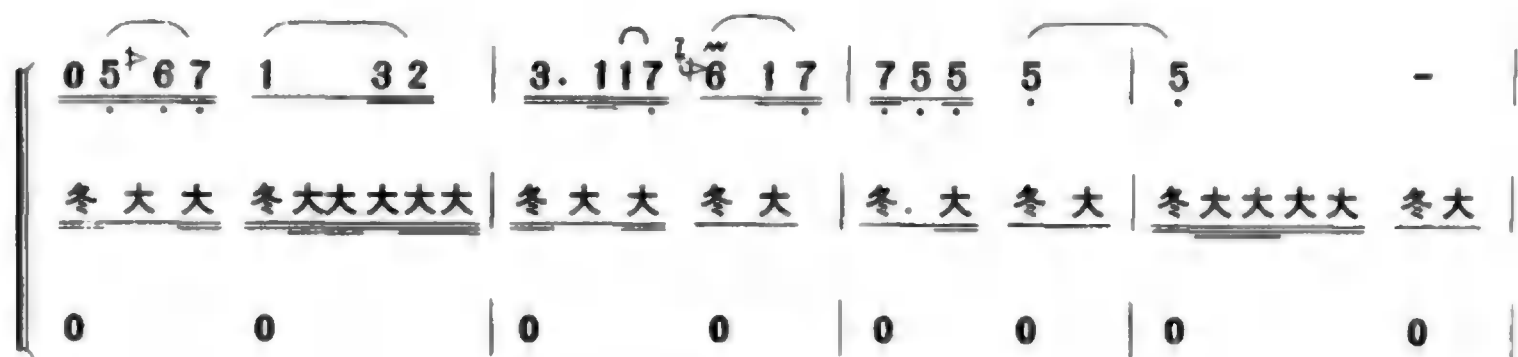 0 5 6 7 1 3 2 | 3. 1 1 7 6 1 7 | 7 5 5 5 | 5 - |
冬 大 大 冬 大 大 大 大 大 | 冬 大 大 冬 大 | 冬. 大 冬 大 | 冬 大 大 大 大 冬 大 |
0 0 | 0 0 | 0 0 | 0 0 |